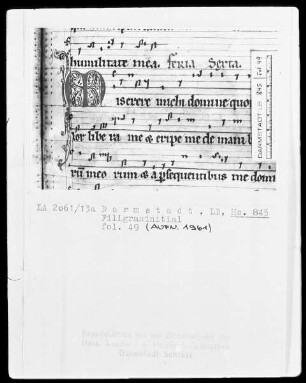 humilitate mea. feria Sexta
Miserere michi domine quo
libera me & eripe me de manib
persequentibus me domi
DARMSTADT LB 845 fol 49
LA 2061/13a Darmstadt, LB, Hs. 845
Filigraninitial
fol. 49 (AUFN. 1961)